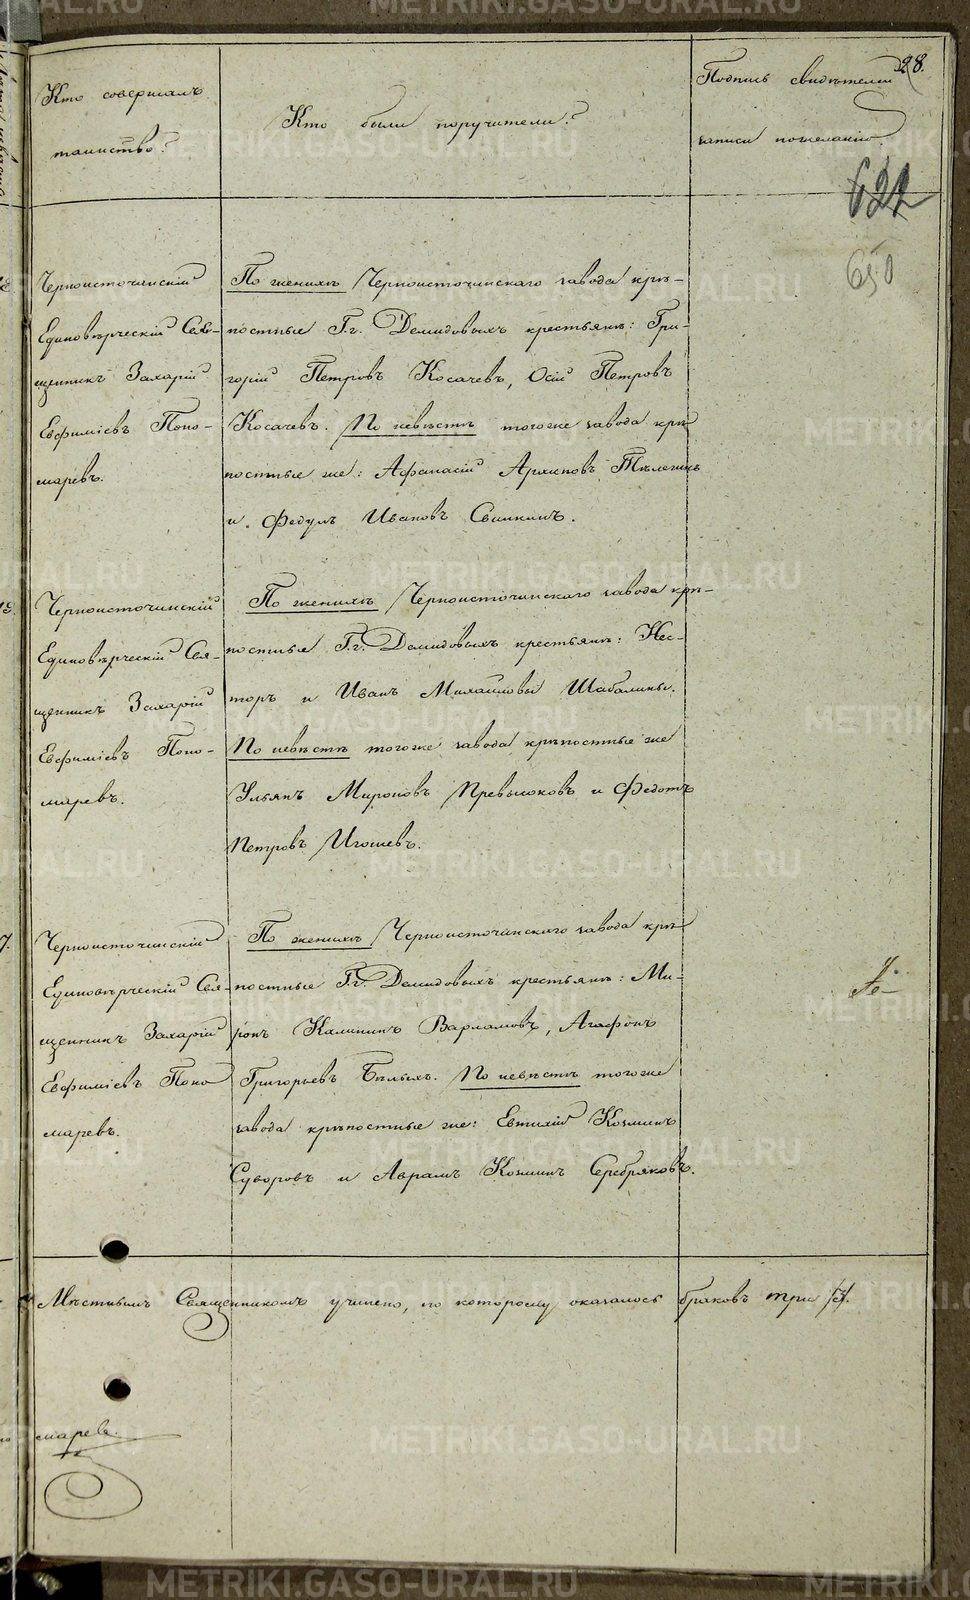 28.
Кто совершалъ
таинство?
Кто были поручители?
Подпись свидѣтелей
записи по желанію.
622
650
Черноисточинскій
Единовѣрческій Свя-
щенникъ Захарій
Евфиміевъ Поно-
маревъ.
По женихѣ Черноисточинскаго завода крѣ-
постные Г.г. Демидовыхъ крестьяне: Гри-
горій Петровъ Косачевъ, Осій Петровъ
Косачевъ. По невѣстѣ того же завода крѣ
постные же: Афанасій Архиповъ Тѣлегинъ
и Федулъ Ивановъ Свинкинъ.
Черноисточинскій
Единовѣрческій Свя-
щенникъ Захарій
Евфиміевъ Поно-
маревъ.
По женихѣ Черноисточинскаго завода крѣ-
постные Г.г. Демидовыхъ крестьяне: Нес-
торъ и Иванъ Михайловы Шабалины.
По невѣстѣ того же завода крѣпостные же
Ульянъ Мироновъ Превысоковъ и Федотъ
Петровъ Игошевъ.
Черноисточинскій
Единовѣрческій Свя-
щенникъ Захарій
Евфиміевъ Поно
маревъ.
По женихѣ Черноисточинскаго завода крѣ
постные Г.г. Демидовыхъ крестьяне: Ми-
ронъ Калининъ Варламовъ, Агафонъ
Григорьевъ Бѣлыхъ. По невѣстѣ того же
завода крѣпостные же: Евтихій Козминъ
Суворовъ и Аврамъ Козминъ Серебряковъ.
Мѣстнымъ Священникомъ учинено, по которому оказалось браковъ три /3/.
маревъ.
METRIKI.GASO-URAL.RU